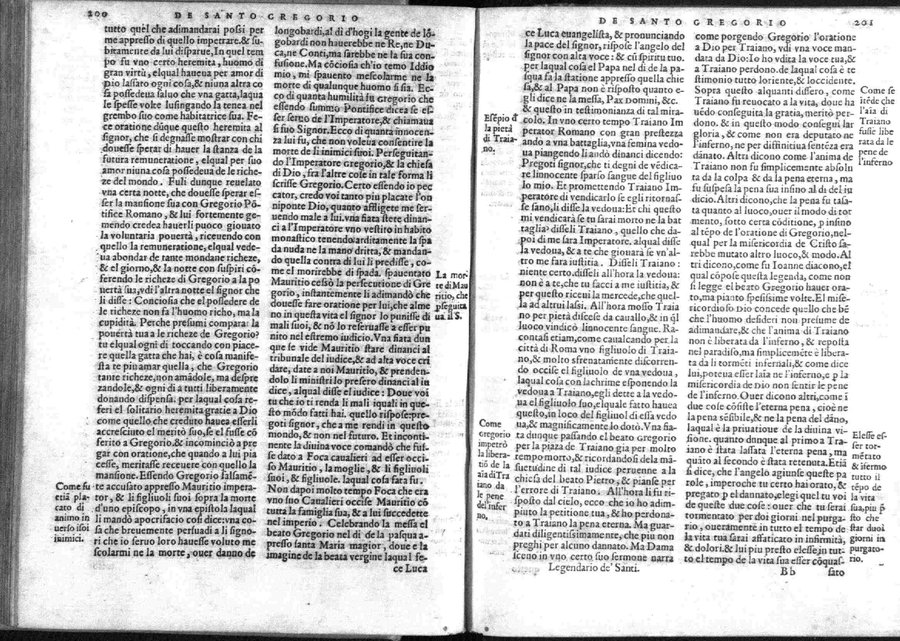 200 DE SANTO GREGORIO
tutto quèl che adimandarai posi per
me appresso di quello impetrare. & su-
bitamente da lui disparue, In quel tem
po fu vno certo heremita, huomo di
gran virtù, elqual haueua per amor di
Dio lassato ogni cosa, & niuna altra co
sa possedeua saluo che vna gatta, laqua
le spesse volte lusingando la tenea nel
grembo suo come habitatrice sua. Fe-
ce oratione dũque questo heremita al
signor, che si degnasse mostrar con chi
douesse sperar di hauer la stanza de la
futura remuneratione, elqual per suo
amor niuna cosa possedeua de le riche-
ze del mondo. Fuli dunque reuelato
vna certa notte, che douesse sperar es-
ser la mansione sua con Gregorio Põ-
tifice Romano, & lui fortemente ge-
mendo credea hauerli puoco giouato
la voluntaria pouertà, riceuendo con
quello la remuneratione, elqual vede-
ua abondar de tante mondane richeze,
& el giorno, & la notte con suspiri cõ-
ferendo le richeze di Gregorio a la po
uertà sua, vdì l'altra notte el signor che
li disse: Conciosia che el possedere de
le richeze non fa l'huomo richo, ma la
cupidità. Perche presumi compara: la
pouertà tua a le richeze de Gregorio?
tu elqual ogni dì toccando con piace-
re quella gatta che hai, è cosa manife-
sta te piu amar quella, che Gregorio
tante richeze, non amãdole, ma despre
zandole, & ogni dì a tutti liberamente
donando dispensa. per laqual cosa re-
ferì el solitario heremita gratie a Dio
come quello che creduto hauea esserli
accresciuto el merito suo, se el fusse cõ
ferito a Gregorio, & incominciò a pre
gar con oratione, che quando a lui pia
cesse, meritasse receuere con quello la
mansione. Essendo Gregorio falsamē-
te accusato appresso Mauritio impera-
tor, & li figliuoli suoi sopra la morte
d'uno episcopo, in vna epistola laqual
li mandò apocrisacio così dice: vna co-
sa che breuemente persuadi a li signo-
ri che io seruo loro hauesse voluto me
scolarmi ne la morte, ouer danno de
Come fu
etiã pla-
cato di
animo in
uerso suoi
inimici.
longobardi, al dì d'hogi la gente de lõ-
gobardi non hauerebbe ne Re, ne Du-
ca, ne Conti, ma sarebbe ne la sua con-
fusione. Ma cõciosia ch'io temo Iddio
mio, mi spauento mescolarme ne la
morte di qualunque huomo si sia. Ec-
co di quanta humilità fu Gregorio che
essendo summo Pontifice dicea si es-
ser seruo de l'Imperator, & chiamaua
si suo Signor. Ecco di quanta innocen-
za lui fu, che non voleua consentire la
morte de li inimici suoi. Perseguitan-
do l'Imperatore Gregorio, & la chiesa
di Dio, fra l'altre cose in tale forma li
scrisse Gregorio. Certo essendo io pec
cator, credo voi tanto piu placare l'on
niponte Dio, quanto affligete ne ser-
uendo male a lui. vna fiata stete dinan-
ci a l'Imperatore vno vestito in habito
monastico tenendo arditamente la spa
da nuda ne la mano dritta, & mandan-
do quella contra di lui li predisse, co-
me el morirebbe di spada. spauentato
Mauritio cessò la persecutione di Gre
gorio, instantemente li adimandò che
douesse fare oratione per lui, che alme
no in questa vita el signor lo punisse di
mali suoi, & nõ lo reseruasse a esser pu
nito nel estremo iudicio. Vna fiata dun
que se vide Mauritio stare dinanci al
tribunale del iudice, & ad alta voce cri
dare, date a noi Mauritio, & prenden-
dolo li ministri lo presero dinanci al iu
dice, alqual disse el iudice: Doue voi
tu che io ti renda li mali iquali in que-
sto mõdo fatti hai. quello rispose: pre-
goti signor, che a me rendi in questo
mondo, & non nel futuro. Et incontì-
nente la diuina voce comandò che fus-
se dato a Foca caualieri ad esser occi-
so Mauritio, la moglie, & li figliuoli
suoi, & figliuole. laqual cosa fata fu.
Non dapoi molto tempo Foca che era
vno suo Caualieri occise Mauritio cõ
tutta la famiglia sua, & a lui succedette
nel imperio. Celebrando la messa el
beato Gregorio nel dì de la pasqua a-
presso santa Maria magior, doue e la
imagine de la beata vergine laqual fe-
ce Luca
La mor-
te di Mau
ritio, che
pseguita
ua il S.
DE SANTO GREGORIO 201
ce Luca euangelista, & pronunciando
la pace del signor, rispose l'angelo del
signor con alta voce: & cū spiritu tuo.
per laqual cosa el Papa nel dì de la pa-
squa fa la statione appresso quella chie
sa, & al Papa non è risposto quanto e-
gli dice ne la messa, Pax domini, &c.
& questo in testimonianza di tal mira-
colo. In vno certo tempo Traiano Im
perator Romano con gran prestezza
ando a vna battaglia, vna femina vedo-
ua piangendo li andò dinanci dicendo:
Pregoti signor, che ti degni de vēdica-
re linnocente sparso sangue del figliuo
lo mio. Et promettendo Traiano Im-
perator de vindicarlo se egli ritornas-
se sano, li disse la vedoua: Et chi questo
mi vendicarà se tu sarai morto ne la bat
taglia? disseli Traiano, quello che da-
poi di me sara Imperatore. alqual disse
la vedoua, & a te che giouarà se vn'al-
tro me fara iustitia. Disseli Traiano:
niente certo. disseli all'hora la vedoua:
non è a te, che tu facci a me iustitia, &
per questo riceui la mercede, che quel-
la ad altrui lassi. All'hora mosso Traia
no per pietà discese da cauallo, & in q̃l
luoco vindicò linnocente sangue. Ra-
contasi etiam, come caualcando per la
città di Roma vno figliuolo di Traia-
no, & molto sfrenatamente discorren-
do occise el figliuolo de vna vedoua,
laqual cosa con lachrime esponendo la
vedoua a Traiano, egli dette a la vedo-
ua el figliuolo suo, elquale fatto hauea
questo, in loco del figliuol di essa vedo
ua, & magnificamente lo dotò. Vna fia-
ta dunque passando el beato Gregorio
per la piaza de Traiano gia per molto
tempo morto, & ricordandosi de la mã-
suetudine di tal iudice peruenne a la
chiesa del beato Pietro, & pianse per
l'errore di Traiano. All'hora li fu ri-
sposto dal cielo, ecco che io ho adim-
piuto la petitione tua, & ho perdona-
to a Traiano la pena eterna. Ma guar-
dati diligentissimamente, che piu non
preghi per alcuno dannato. Ma Dama
sceno in vno certo suo sermone narra
Legendario de' Santi.
Esēpio d̃
la pietà
di Traia-
no.
Come
gregorio
impetrò
la liber-
tò de la
aīa di Tra
iano da
le pene
del'infer
no.
come porgendo Gregorio l'oratione
a Dio per Traiano, vdì vna voce man-
data da Dio: Io ho vdita la voce tua, &
a Traiano perdono. de laqual cosa è te
stimonio tutto loriente, & loccidente.
Sopra questo alquanti dissero, come
Traiano fu reuocato a la vita, doue ha
uēdo conseguita la gratia, meritò per-
dono. & in questo modo conseguì la
gloria, & come non era deputato ne
l'inferno, ne per diffinitiua sentēza era
dãnato. Altri dicono come l'anima de
Traiano non fu simplicemente absolu
ta da la colpa & da la pena eterna, ma
fu suspesa la pena sua insino al dì del iu
dicio. Altri dicono, che la pena fu tasa-
ta quanto al luoco, ouer il modo di tor
mento, sotto certa cõditione, p insino
al tēpo de l'oratione di Gregorio, nel-
qual per la misericordia de Cristo sa-
rebbe mutato altro luoco, & modo. Al
tri dicono, come fu Ioanne diacono, el
qual cõpose questa legenda, come non
si legge el beato Gregorio hauer orato
, ma pianto spessissime volte. El mise-
ricordioso Dio concede quello che bē
che l'huomo desideri non presume de
adimandare, & che l'anima di Traiano
non è liberata da l'inferno, & reposta
nel paradiso, ma simplicemēte è libera-
ta da li tormēti infernali, & come dice
lui, poteua esser laīa ne l'inferno, e p la
misericordia de Dio non sentir le pene
de l'inferno. Ouer dicono altri, come ī
due cose cõsiste l'eterna pena, cioè ne
la pena sēsibile, & ne la pena del dãno,
laqual è la priuatione de la diuina vi-
sione. quanto dunque al primo a Tra-
iano è stata lassata l'eterna pena, ma
quãto al secondo è stata retenuta. Etiã
si dice, che l'angelo agiunse queste pa-
role, imperoche tu certo hai orato, &
pregato p el dannato, elegi qual tu voi
de queste due cose: ouer che tu serai
tormentato per doi giorni nel purga-
rio, oueramente in tutto el tempo de
la vita tua sarai affaticato in infirmità,
& dolori. & lui piu presto elesse, in tut-
to el tempo de la vita sua esser cõquas-
Bb sato
Come se
itēde che
l'aīa di
Traiano
fusse libe
rata da le
pene de
l'inferno
Elesse es-
ser tor-
mētato
& ifermo
tutto il
tēpo de
la vita
sua, piu p̄
sto che
star duoi
giorni in
purgato-
rio.